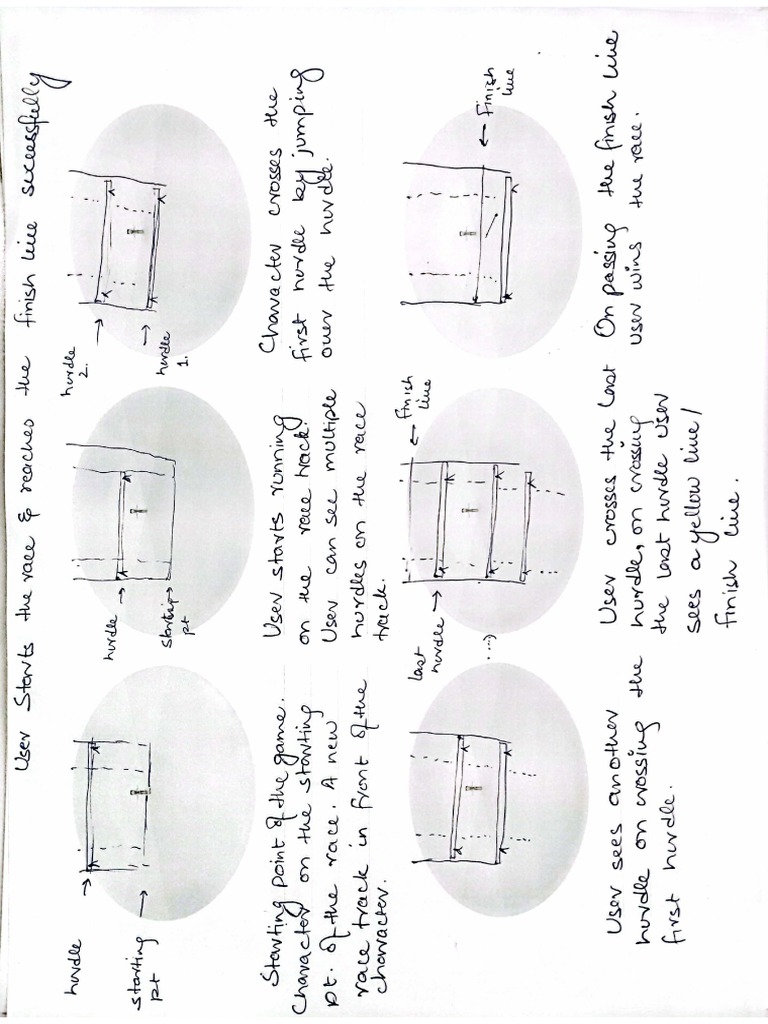 User Starts the race & reaches the finish line successfully
hurdle
starting
pt
Starting point of the game.
Character on the starting
pt. of the race. A new
race track in front of the
character.
hurdle
starting
pt
User starts running
on the race track.
User can see multiple
hurdles on the race
track.
hurdle
2.
hurdle
1.
Character crosses the
first hurdle by jumping
over the hurdle.
User sees another
hurdle on crossing the
first hurdle.
last
hurdle
....)
finish
line
User crosses the last
hurdle, on crossing
the last hurdle user
sees a yellow line/
finish line.
finish
line
On passing the finish line
user wins the race.